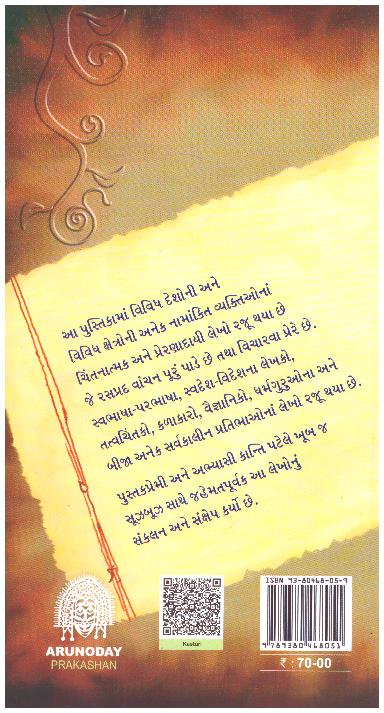 આ પુસ્તિકામાં વિવિધ દેશોની અને
વિવિધ ક્ષેત્રોની અનેક નામાંકિત વ્યક્તિઓનાં
ચિંતનાત્મક અને પ્રેરણાદાયી લેખો રજૂ થયા છે
જે રસપ્રદ વાંચન પૂરું પાડે છે તથા વિચારવા પ્રેરે છે.
સ્વભાષા-પરભાષા, સ્વદેશ-વિદેશના લેખકો,
તત્વચિંતકો, કળાકારો, વૈજ્ઞાનિકો, ધર્મગુરુઓના અને
બીજા અનેક સર્વકાલીન પ્રતિભાઓનાં લેખો રજૂ થયા છે.
પુસ્તકપ્રેમી અને અભ્યાસી કાન્તિ પટેલે ખૂબ જ
સૂઝબૂઝ સાથે જહેમતપૂર્વક આ લેખોનું
સંકલન અને સંક્ષેપ કર્યો છે.
ARUNODAY
PRAKASHAN
Kasturi
ISBN 93-80468-05-9
9789380468051
₹ : 70-00